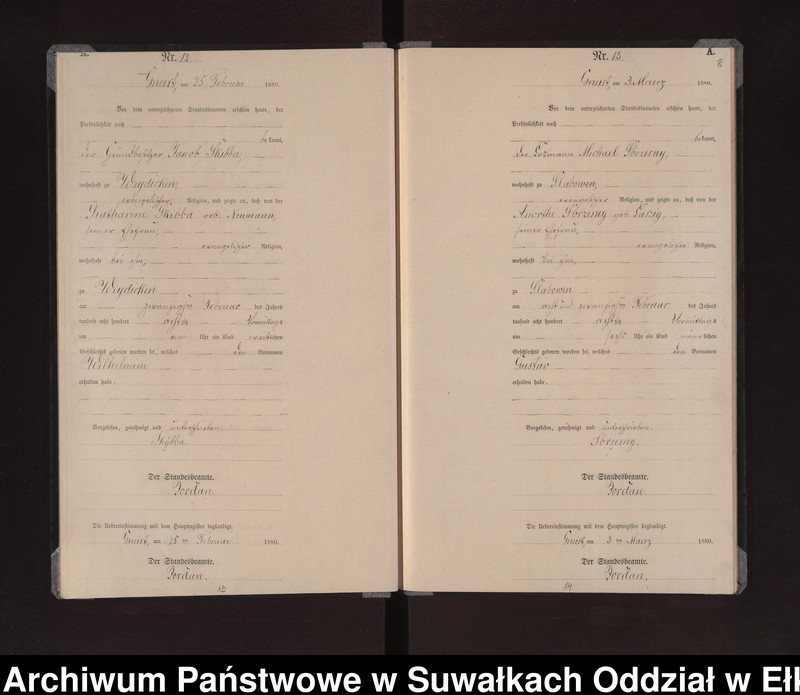 A.
Nr. 12.
Gneist, am 25 Februar 1880.
Vor dem unterzeichneten Standesbeamten erschien heute, der
Persönlichkeit nach
bekannt,
der Grundbesitzer Jacob Skibba,
wohnhaft zu Weydicken,
evangelischer Religion, und zeigte an, daß von der
Skibba geb. Neumann,
seiner Ehefrau,
evangelischer Religion,
wohnhaft bei ihm,
zu Weydicken
am zwanzigsten Februar des Jahres
tausend acht hundert achtzig Vormittags
um Uhr ein Kind weiblichen
Geschlechts geboren worden sei, welches den Vornamen
Wilhelmine
erhalten habe.
Vorgelesen, genehmigt und unterschrieben
Skibba
Der Standesbeamte.
Jordan.
Die Uebereinstimmung mit dem Hauptregister beglaubigt.
Gneist, am 25 ten Februar 1880.
Der Standesbeamte.
Jordan.
13
Nr. 13.
A.
8
Gneist, am 3 Maerz 1880.
Vor dem unterzeichneten Standesbeamten erschien heute, der
Persönlichkeit nach
bekannt,
der Losmann Michael
wohnhaft zu Slabowen,
evangelischer Religion, und zeigte an, daß von der
geb.
seiner Ehefrau,
evangelischer Religion,
wohnhaft bei ihm,
zu Slabowen
am acht und zwanzigsten Februar des Jahres
tausend acht hundert achtzig Vormittags
um sechs Uhr ein Kind männlichen
Geschlechts geboren worden sei, welches den Vornamen
Gustav
erhalten habe.
Vorgelesen, genehmigt und unterschrieben.
Der Standesbeamte.
Jordan.
Die Uebereinstimmung mit dem Hauptregister beglaubigt.
Gneist, am 3 ten Maerz 1880.
Der Standesbeamte.
Jordan.
14
Archiwum Państwowe w Suwałkach Oddział w Eł